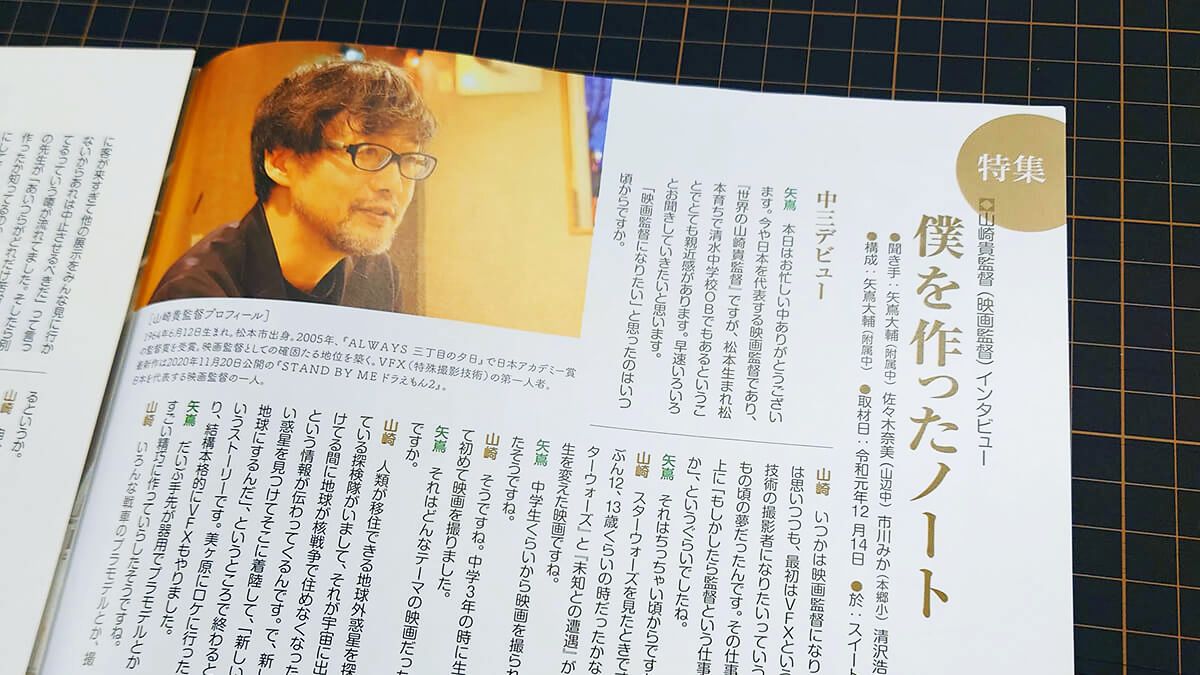 特集
◆山崎貴監督(映画監督)インタビュー
僕を作ったノート
●聞き手:矢嶌大輔(附属中) 佐々木奈美(山辺中) 市川みか(本郷小) 清沢浩
●構成:矢嶌大輔(附属中) ●取材日:令和元年12月14日 ●於:スイート
中三デビュー
矢嶌 本日はお忙しい中ありがとうござい
ます。今や日本を代表する映画監督であり、
『世界の山崎貴監督』ですが、松本生まれ松
本育ちで清水中学校OBでもあるというこ
とでとても親近感があります。早速いろいろ
とお聞きしていきたいと思います。
「映画監督になりたい」と思ったのはいつ
頃からですか。
[山崎貴監督プロフィール]
1964年6月12日生まれ。松本市出身。2005年、『ALWAYS 三丁目の夕日』で日本アカデミー賞
の監督賞を受賞。映画監督としての確固たる地位を築く。VFX(特殊撮影技術)の第一人者。
最新作は2020年11月20日公開の『STAND BY ME ドラえもん2』。
日本を代表する映画監督の一人。
山崎 いつかは映画監督になり
は思いつつも、最初はVFXという
技術の撮影者になりたいっていう
もの頃の夢だったんです。その仕事
上に「もしかしたら監督という仕事
か」、というぐらいでしたね。
矢嶌 それはちっちゃい頃からです
山崎 スターウォーズを見たときで
ぶん12、13歳くらいの時だったかな
ターウォーズ』と『未知との遭遇』が
生を変えた映画ですね。
矢嶌 中学生くらいから映画を撮られ
たそうですね。
山崎 そうですね。中学3年の時に生
て初めて映画を撮りました。
矢嶌 それはどんなテーマの映画だっ
ですか。
山崎 人類が移住できる地球外惑星を探
ている探検隊がいまして、それが宇宙に出
けてる間に地球が核戦争で住めなくなった
という情報が伝わってくるんです。で、新し
い惑星を見つけてそこに着陸して、「新しい
地球にするんだ」、というところで終わると
いうストーリーです。美ヶ原にロケに行った
り、結構本格的にVFXもやりました。
矢嶌 だいぶ手先が器用でプラモデルとか
すごい精巧に作っていらしたそうですね。
山崎 いろんな戦車のプラモデルとか、撮
に客が来すぎて他の展示をみんな見に行か
ないからあれは中止させるべきだ」って言う
てるっていう噂が流れてました。そしたら別
の先生が「あいつらがどれだけ
作ったか知ってるのか
るというか。
山崎